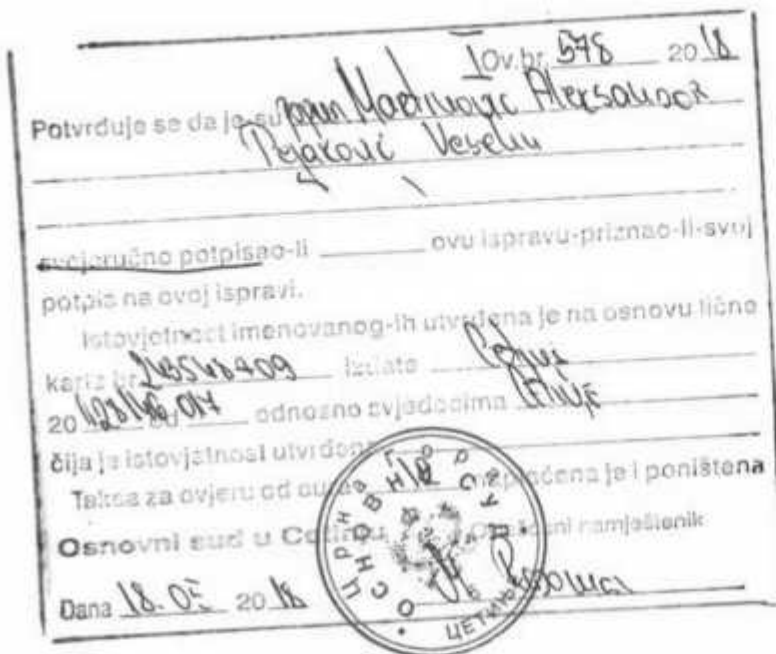 I Ov.br. 578 2018
Potvrđuje se da je-su Martinović Aleksandar
Pejaković Veselin
svojeručno potpisao-li ovu ispravu-priznao-li-svoj
potpis na ovoj ispravi.
Istovjetnost imenovanog-ih utvrđena je na osnovu lične
karte br. izdate Cetinje
20 odnosno svjedocima Cetinje
čija je istovjetnost utvrđena
Taksa za ovjeru od eura naplaćena je i poništena
Osnovni sud u Cetinju Ovlašćeni namještenik
Dana 18.05 2018
Црна Гора
ОСНОВНИ СУД
ЦЕТИЊЕ